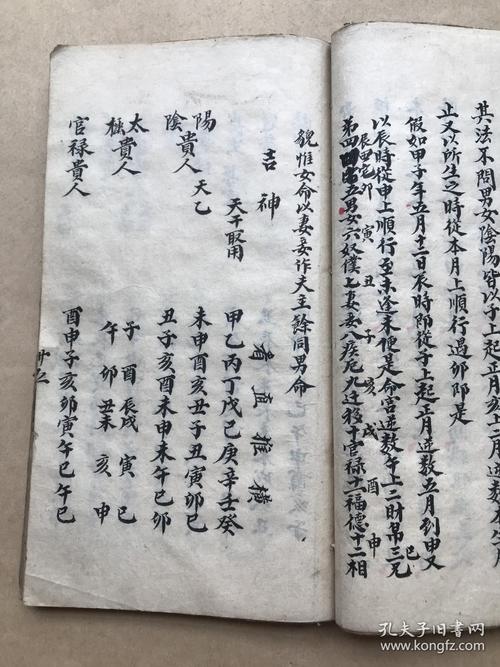 其法不問男女陰陽皆以子上起正月逆數
止又以所生之時從本月上順行遇卯即是
假如甲子年五月十二日辰時即從子上起正月逆數五月到申又
以辰時從申上順行至未逢未便是命宮逆數午上二財帛三兄
第四田宅五男女六奴僕七妻妾八疾厄九迁移十官禄十一福德十二相
貌惟女命以妻妾作夫主餘同男命
吉神 天干取用 看直推橫
陽貴人 天乙 甲乙丙丁戊己庚辛壬癸
陰貴人 未申酉亥丑子丑寅卯巳
丑子亥酉未申未午巳卯
太極貴人 子酉辰戌寅巳
午卯丑未亥申
官禄貴人 酉申子亥卯寅午巳午巳
卅三
孔夫子旧书网
www.kongfz.com